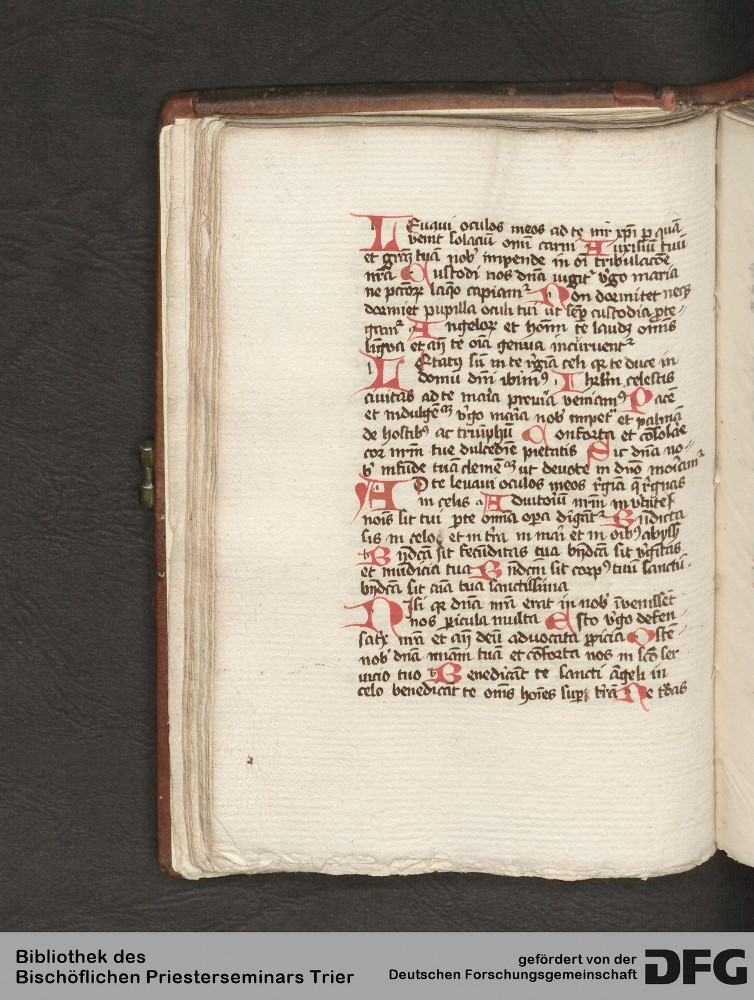 LEuaui oculos meos ad te mr̄ xp̄i p quā
venit solaciū omī carni Auxiliū tuū
et grām tuā nob̾ impende in oī tribulacōe
nrā Custodi nos dn̄a iugit᷑ v̾go maria
ne pctōꝝ laq̾o capiam᷑ Non dormitet neqȝ
dormiet pupilla oculi tui ut semp̄ custodia prote
gam᷑ Angeloꝝ et hom̄m te laudȝ omīs
lingwa et añ te oīa genua incuruent᷑
LEtatꝰ sū in te r̾gīa celi qꝛ te duce in
domū dnī ibimꝰ Ihrl̄m celestis
ciuitas ad te mar̾ia preuia veniamꝰ Pacē
et indulgē v̾go maria nob̾ impet᷑ et palmā
de hostibꝰ ac triūphū Conforta et cōsolar̾e
cor nrm̄ tue dulcedīe pietatis Sic dn̄a no
b̾ infūde tuā clemē ut deuote in dnō moriam᷑
AD te leuaui oculos meos r̾gīa q̄ r̾gnas
in celis Adiutoriū nrm̄ in v̾tute
noīs sit tui p te omīa opa dirigāt᷑ Bn̄dicta
sis in celo et in tr̄a in mari et in oībꝰ abyssꝭ
Bn̄dcā sit fecūditas tua bn̄dcā sit v̾gītas
et mūdicia tua Bn̄dcm̄ sit corpꝰ tuū sanctū
bn̄dcā sit aīa tua sanctissima
NIsi qꝛ dn̄a mr̄a erat in nob̾ īvenisset
nos picula multa Esto v̾go defen
satꝛx nrā et añ deū aduocata ppicia Oste
nob̾ dn̄a mīam tuā et cōforta nos in scō ser
uicio tuo Benedicāt te sancti āgeli in
celo benedicāt te omīs hoīes sup tr̄ā Ne tdas
Bibliothek des
Bischöflichen Priesterseminars Trier
gefördert von der
Deutschen Forschungsgemeinschaft
DFG